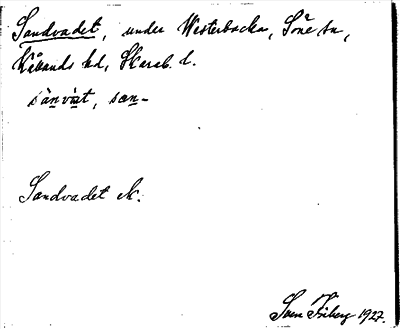 Sandvadet, under Westerbacka, Söne sn,
Kållands hd, Skarab. l.
sànvàt, san-
Sandvadet
Sven Friberg 1927.